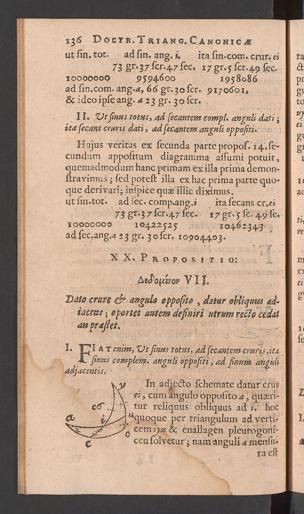 136 DOCTR. TRIANG. CANONICÆ
ut sin. tot. ad sin. ang. i. ita sin. com. crur. ei
73 gr. 37 scr. 47 sec. 17 gr. 5 scr. 49 sec.
10000000 9594600 1958086
ad sin. com. ang. a, 66 gr. 30 scr. 9170601.
& ideo ipse ang. a 23 gr. 30 scr.
II. Ut sinus totus, ad secantem compl. anguli dati;
ita secans cruris dati, ad secantem anguli oppositi.
Hujus veritas ex secunda parte propos. 14. se-
cundum appositum diagramma assumi potuit,
quemadmodum hanc primam ex illa prima demon-
stravimus; sed potest illa ex hac prima parte quo-
que derivari; inspice quæ illic diximus.
ut sin. tot. ad sec. comp. ang. i ita secans cr. ei
73 gr. 37 scr. 47 sec. 17 gr. 5 sc. 49 se.
10000000 10422525 10462343
ad sec. ang. a 23 gr. 30 scr. 10904403.
XX. PROPOSITIO:
Δεδομένον VII.
Dato crure & angulo opposito, datur obliquus ad-
jacens; oportet autem definiri utrum recto cedat
an præstet.
I. FIAT enim, Ut sinus totus, ad secantem cruris, ita
sinus complem. anguli oppositi, ad sinum anguli
adjacentis.
In adjecto schemate datur crus
ei, cum angulo opposito a, quæri-
tur reliquus obliquus ad i. hoc
quoque per triangulum ad verti-
cem & enallagen pleurogoni-
cen solvetur; nam anguli a mensu-
ra est
a
i
e
o
y
u